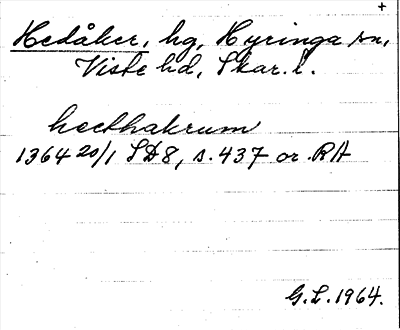 +
Hedåker, hg, Hyringa sn,
Viste hd, Skar. l.
hedhakrum
1364 20/1 SD8, s. 437 or. RA
G.L. 1964.